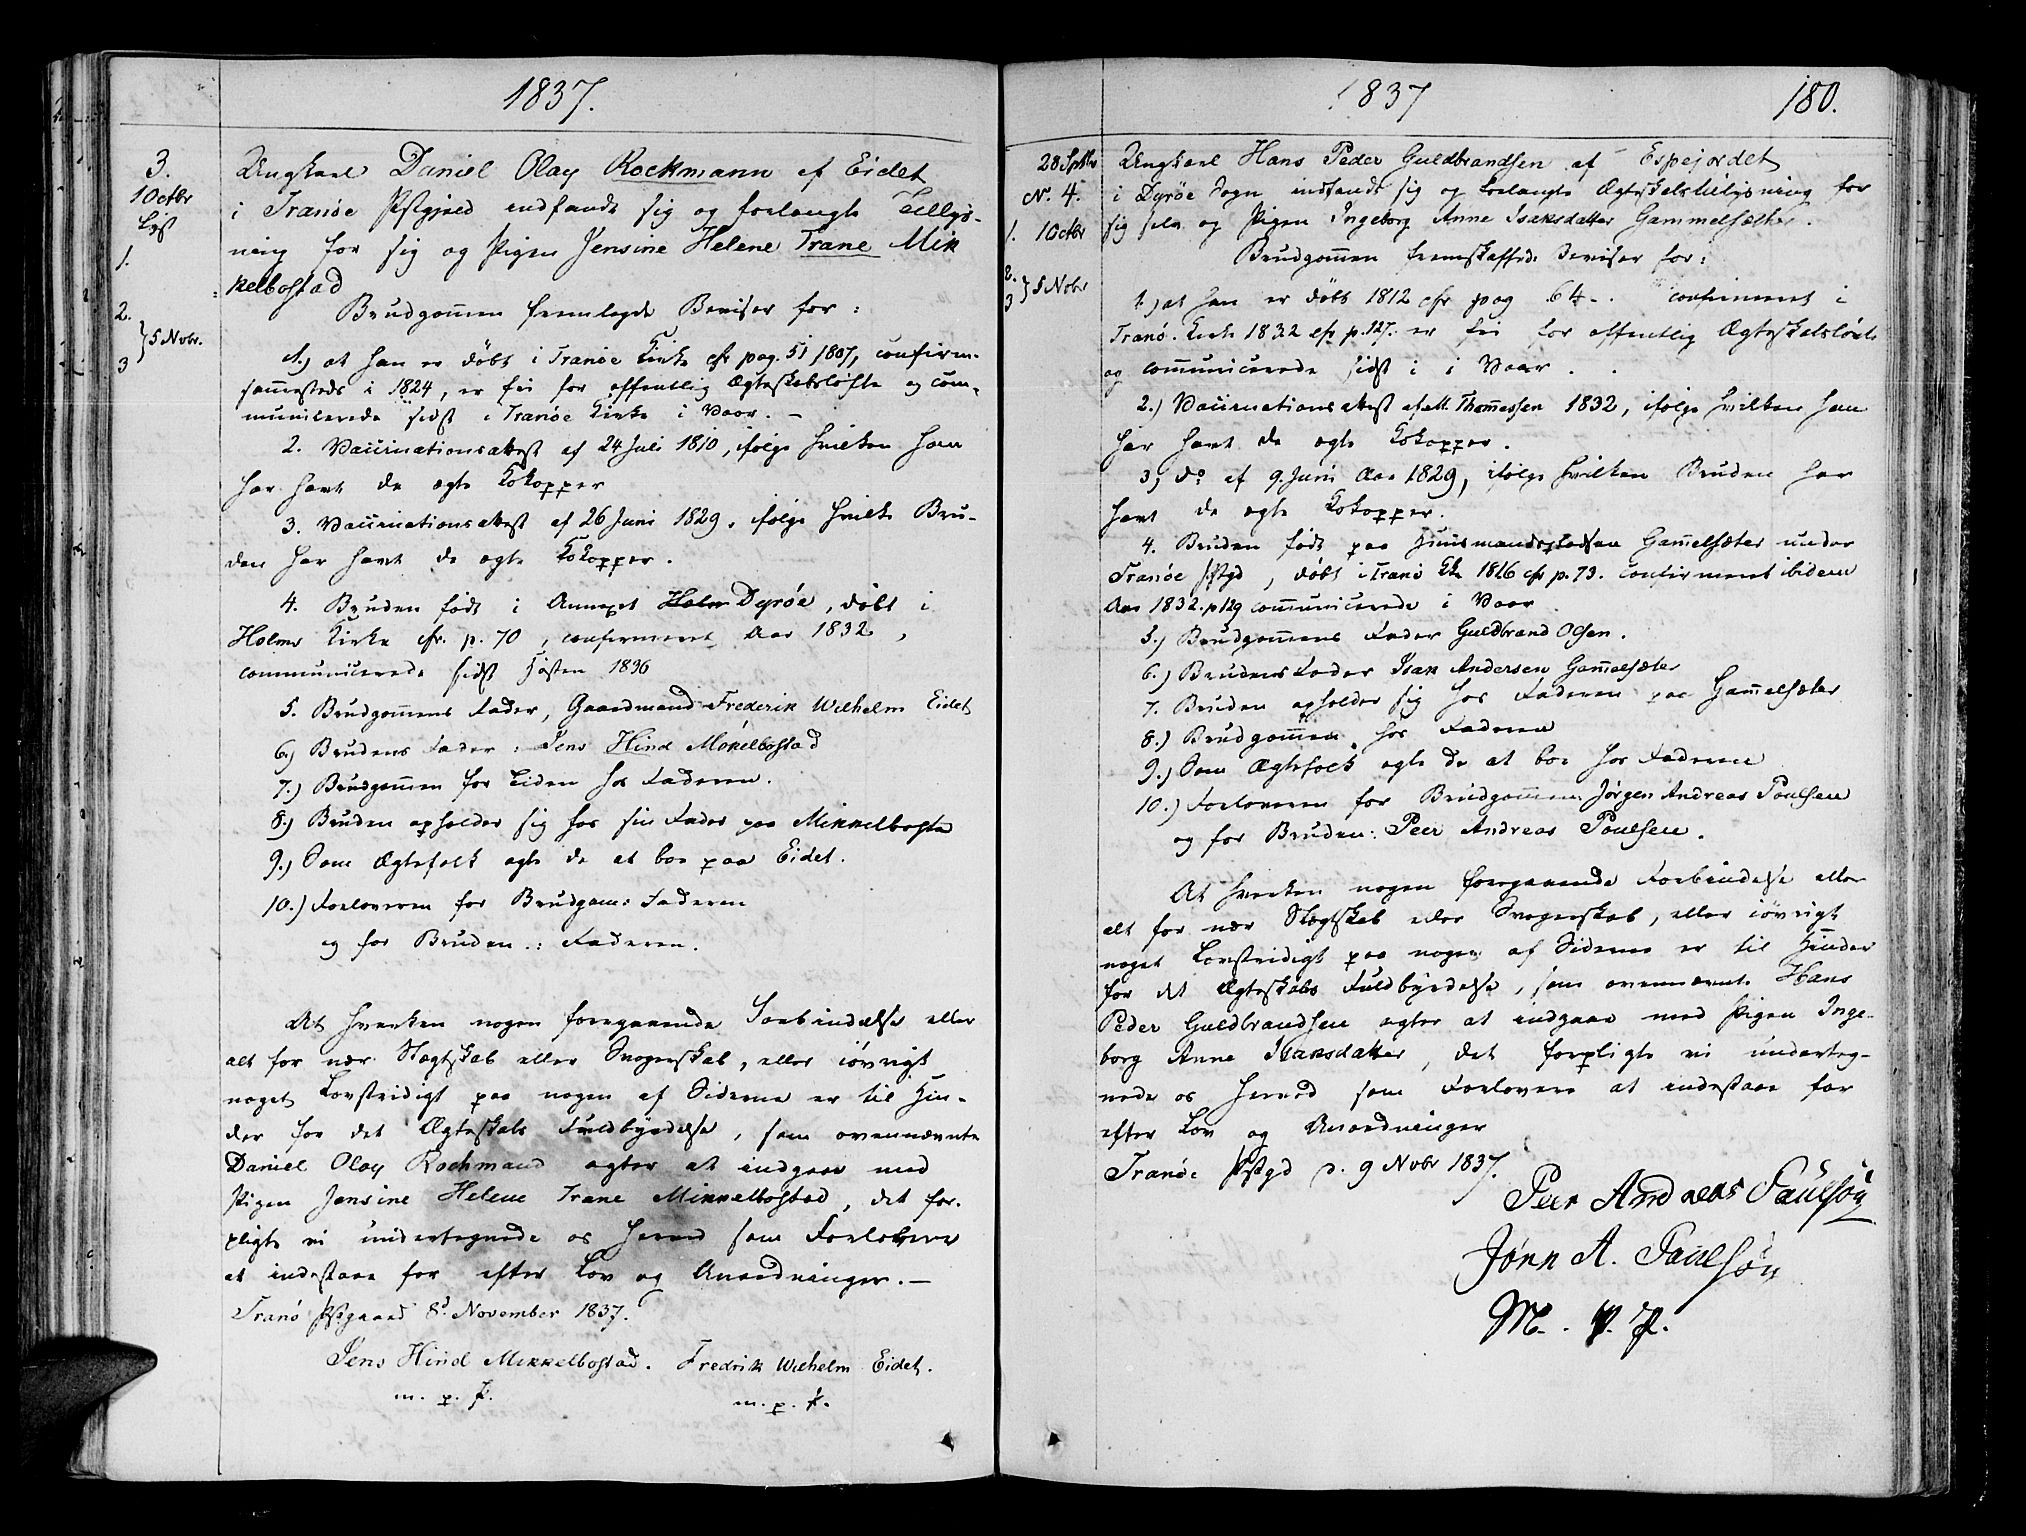 1837.
3.
10ctbr
Lyst
1.
2.
} 5 Nobr.
3
Ungkarl Daniel Olay Rockmann af Eidet
i Tranöe Pstgjeld indfandt sig og forlangte Tillys-
ning for sig og Pigen Jensine Helene Trane Mik
kelbostad
Brudgom̄en fremlagde Beviser for:
1.) at han er döbt i Tranöe Kirke cfr pag. 51 1807, confirm.
sam̄esteds i 1824, er fri for offentlig Ægteskabslöfte og com-
municerede sidst i Tranöe Kirke i Vaar. –
2. Vaccinationsattest af 24 Juli 1810, ifølge hvilken han
har havt de ægte Kokopper
3. Vaccinationsattest af 26 Juni 1829, ifölge hvilke Bru-
den har havt de ægte Kokopper.
4. Bruden födt i Annexet Dyröe, döbt i
Holms Kirke cfr. p. 70, confirmeret Aar 1832,
communicerede sidst Hösten 1836
5. Brudgom̄ens Fader, Gaardmand Frederik Wilhelm Eidet
6) Brudens Fader: Jens Hind Mökelbostad
7.) Brudgom̄en for Tiden hos Faderen.
8.) Bruden opholder sig hos sin Fader paa Mikkelbosta
9.) Som Ægtefolk agte de at boe paa Eidet.
10.) Forloveren for Brudgom: Faderen
og for Bruden.: Faderen.
At hverken nogen foregaaende Forbindelse eller
alt for nær Slægtskab eller Svogerskab, eller iövrigt
noget Lovstridigt paa nogen af Siderne er til Hin-
der for det Ægteskabs Fuldbyrdelse, som ovennævnte
Daniel Olay Rochmand agter at indgaae med
Pigen Jensine Helene Trane Mikkelbostad, det for-
pligte vi undertegnede os herved som Forlovere
at indestaae for efter Lov og Anordninger. –
Tranö Pstgaard 8d November 1837.
Jens Hind Mikkelbostad. Fredrik Wilhelm Eidet.
m. p. P. m. p. P.
1837 180.
28 Sptbr
No. 4.
1. 10ctbr
2.
} 5 Nobr
3
Ungkarl Hans Peder Guldbrandsen af Espejordet
i Dyröe Sogn indfandt sig og forlangte Ægteskabstillysning for
sig selv og Pigen Ingeborg Anne Isaksdatter Gammelsæther.
Brudgom̄en fremskaffede Beviser for:
1.) at han er döbt 1812 cfr pag 64. confirmeret i
Tranö. Kirke 1832 cfr p. 127. er fri for offentlig Ægteskabslöfte
og communicerede sidst i i Vaar.
2.) Vaccinationsattest af Thom̄essen 1832, ifölge hvilken han
har havt de ægte Kokopper.
3) do af 9. Juni Aar 1829, ifölge hvilken Bruden har
havt de ægte Kokopper.
4. Bruden födt paa Huusmandspladsen Gam̄elsæter under
Tranöe Pstgd, döbt i Tranö Kke 1816 cfr p. 73. confirmeret ibidem
Aar 1832. p 129 communicerede i Vaar
5.) Brudgom̄ens Fader Guldbrand Olsen.
6.) Brudens Fader Isak Andersen Gam̄elsæter
7. Bruden opholder sig hos Faderen paa Gam̄elsæter
8.) Brudgom̄en hos Faderen
9.) Som Ægtefolk agte de at boe hos Faderen
10.) Forloveren for Brudgom̄en: Jörgen Andreas Poulsen
og for Bruden: Peer Andreas Poulsen.
At hverken nogen foregaaende Forbindelse eller
alt for nær Slægtskab eller Svogerskab, eller iövrigt
noget Lovstridigt paa nogen af Siderne er til Hinder
for det Ægteskabs Fuldbyrdelse, som ovennævnte Hans
Peder Guldbrandsen agter at indgaae med Pigen Inge-
borg Anne Isaksdatter, det forpligte vi underteg-
nede os herved som Forlovere at indestaae for
efter Lov og Anordninger
Tranöe Pstgd d. 9 Nobr 1837.
Peer Andreas Paulsön
Jönn A. Paulsön
M. P. P.